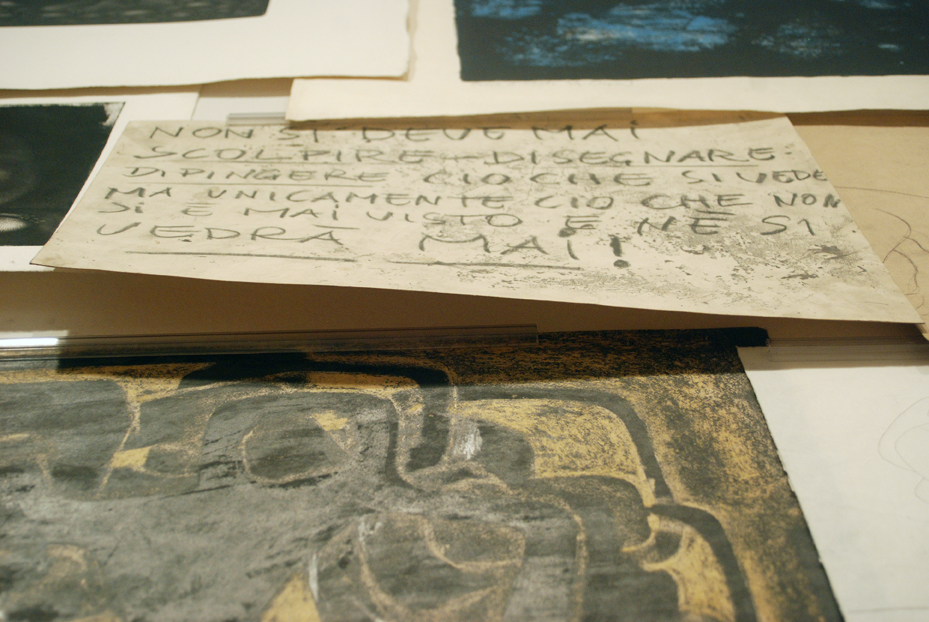 NON SI DEVE MAI
SCOLPIRE - DISEGNARE -
DIPINGERE CIO CHE SI VEDE
MA UNICAMENTE CIO CHE NON
SI È MAI VISTO E NE SI
VEDRÀ MAI!